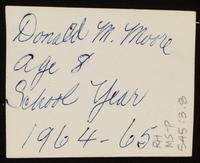 Donald M. Moore
age 8
School Year
1964-65
RH
MS-P
545:3.8